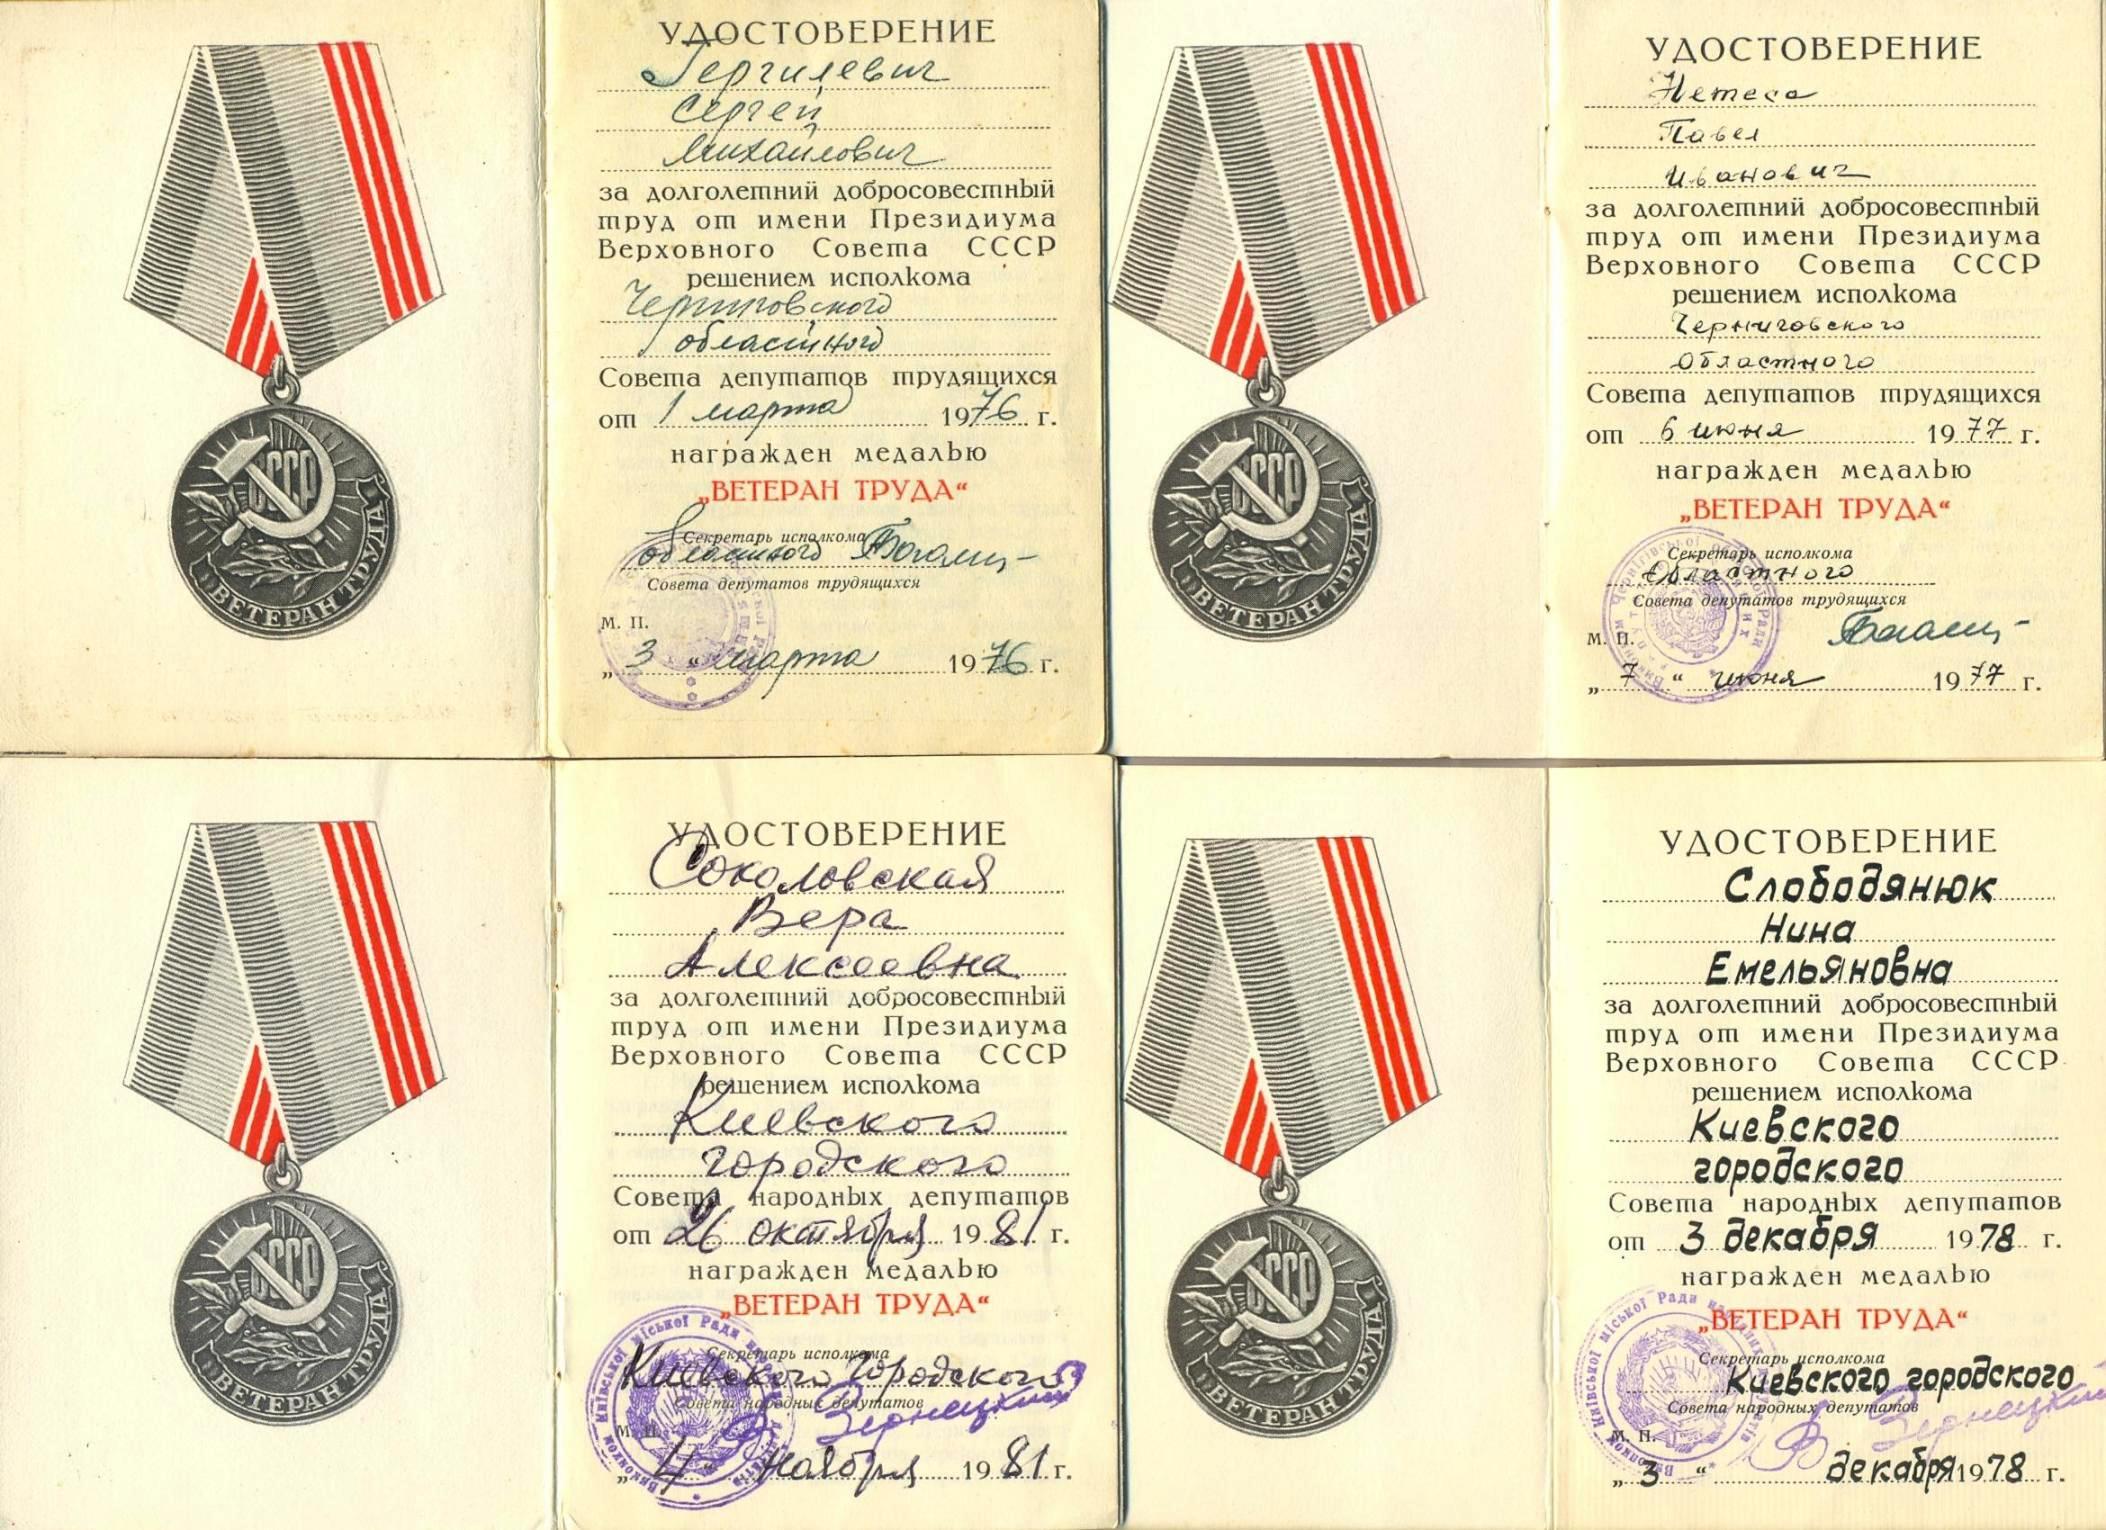 УДОСТОВЕРЕНИЕ
Гергилевич
Сергей
Михайлович
за долголетний добросовестный
труд от имени Президиума
Верховного Совета СССР
решением исполкома
Черниговского
областного
Совета депутатов трудящихся
от 1 марта 1976 г.
награжден медалью
„ВЕТЕРАН ТРУДА“
Секретарь исполкома
областного
Совета депутатов трудящихся
М. П.
„ 3 “ марта 1976 г.
СССР
ВЕТЕРАН ТРУДА
УДОСТОВЕРЕНИЕ
Нетеса
Павел
Иванович
за долголетний добросовестный
труд от имени Президиума
Верховного Совета СССР
решением исполкома
Черниговского
Областного
Совета депутатов трудящихся
от 6 июня 1977 г.
награжден медалью
„ВЕТЕРАН ТРУДА“
Секретарь исполкома
Областного
Совета депутатов трудящихся
М. П.
„ 7 “ июня 1977 г.
СССР
ВЕТЕРАН ТРУДА
УДОСТОВЕРЕНИЕ
Соколовская
Вера
Алексеевна
за долголетний добросовестный
труд от имени Президиума
Верховного Совета СССР
решением исполкома
Киевского
городского
Совета народных депутатов
от 26 октября 1981 г.
награжден медалью
„ВЕТЕРАН ТРУДА“
Секретарь исполкома
Киевского Городского
Совета народных депутатов
М. П.
„ 4 “ ноября 1981 г.
СССР
ВЕТЕРАН ТРУДА
УДОСТОВЕРЕНИЕ
Слободянюк
Нина
Емельяновна
за долголетний добросовестный
труд от имени Президиума
Верховного Совета СССР
решением исполкома
Киевского
городского
Совета народных депутатов
от 3 декабря 1978 г.
награжден медалью
„ВЕТЕРАН ТРУДА“
Секретарь исполкома
Киевского городского
Совета народных депутатов
М. П.
„ 3 “ декабря 1978 г.
СССР
ВЕТЕРАН ТРУДА